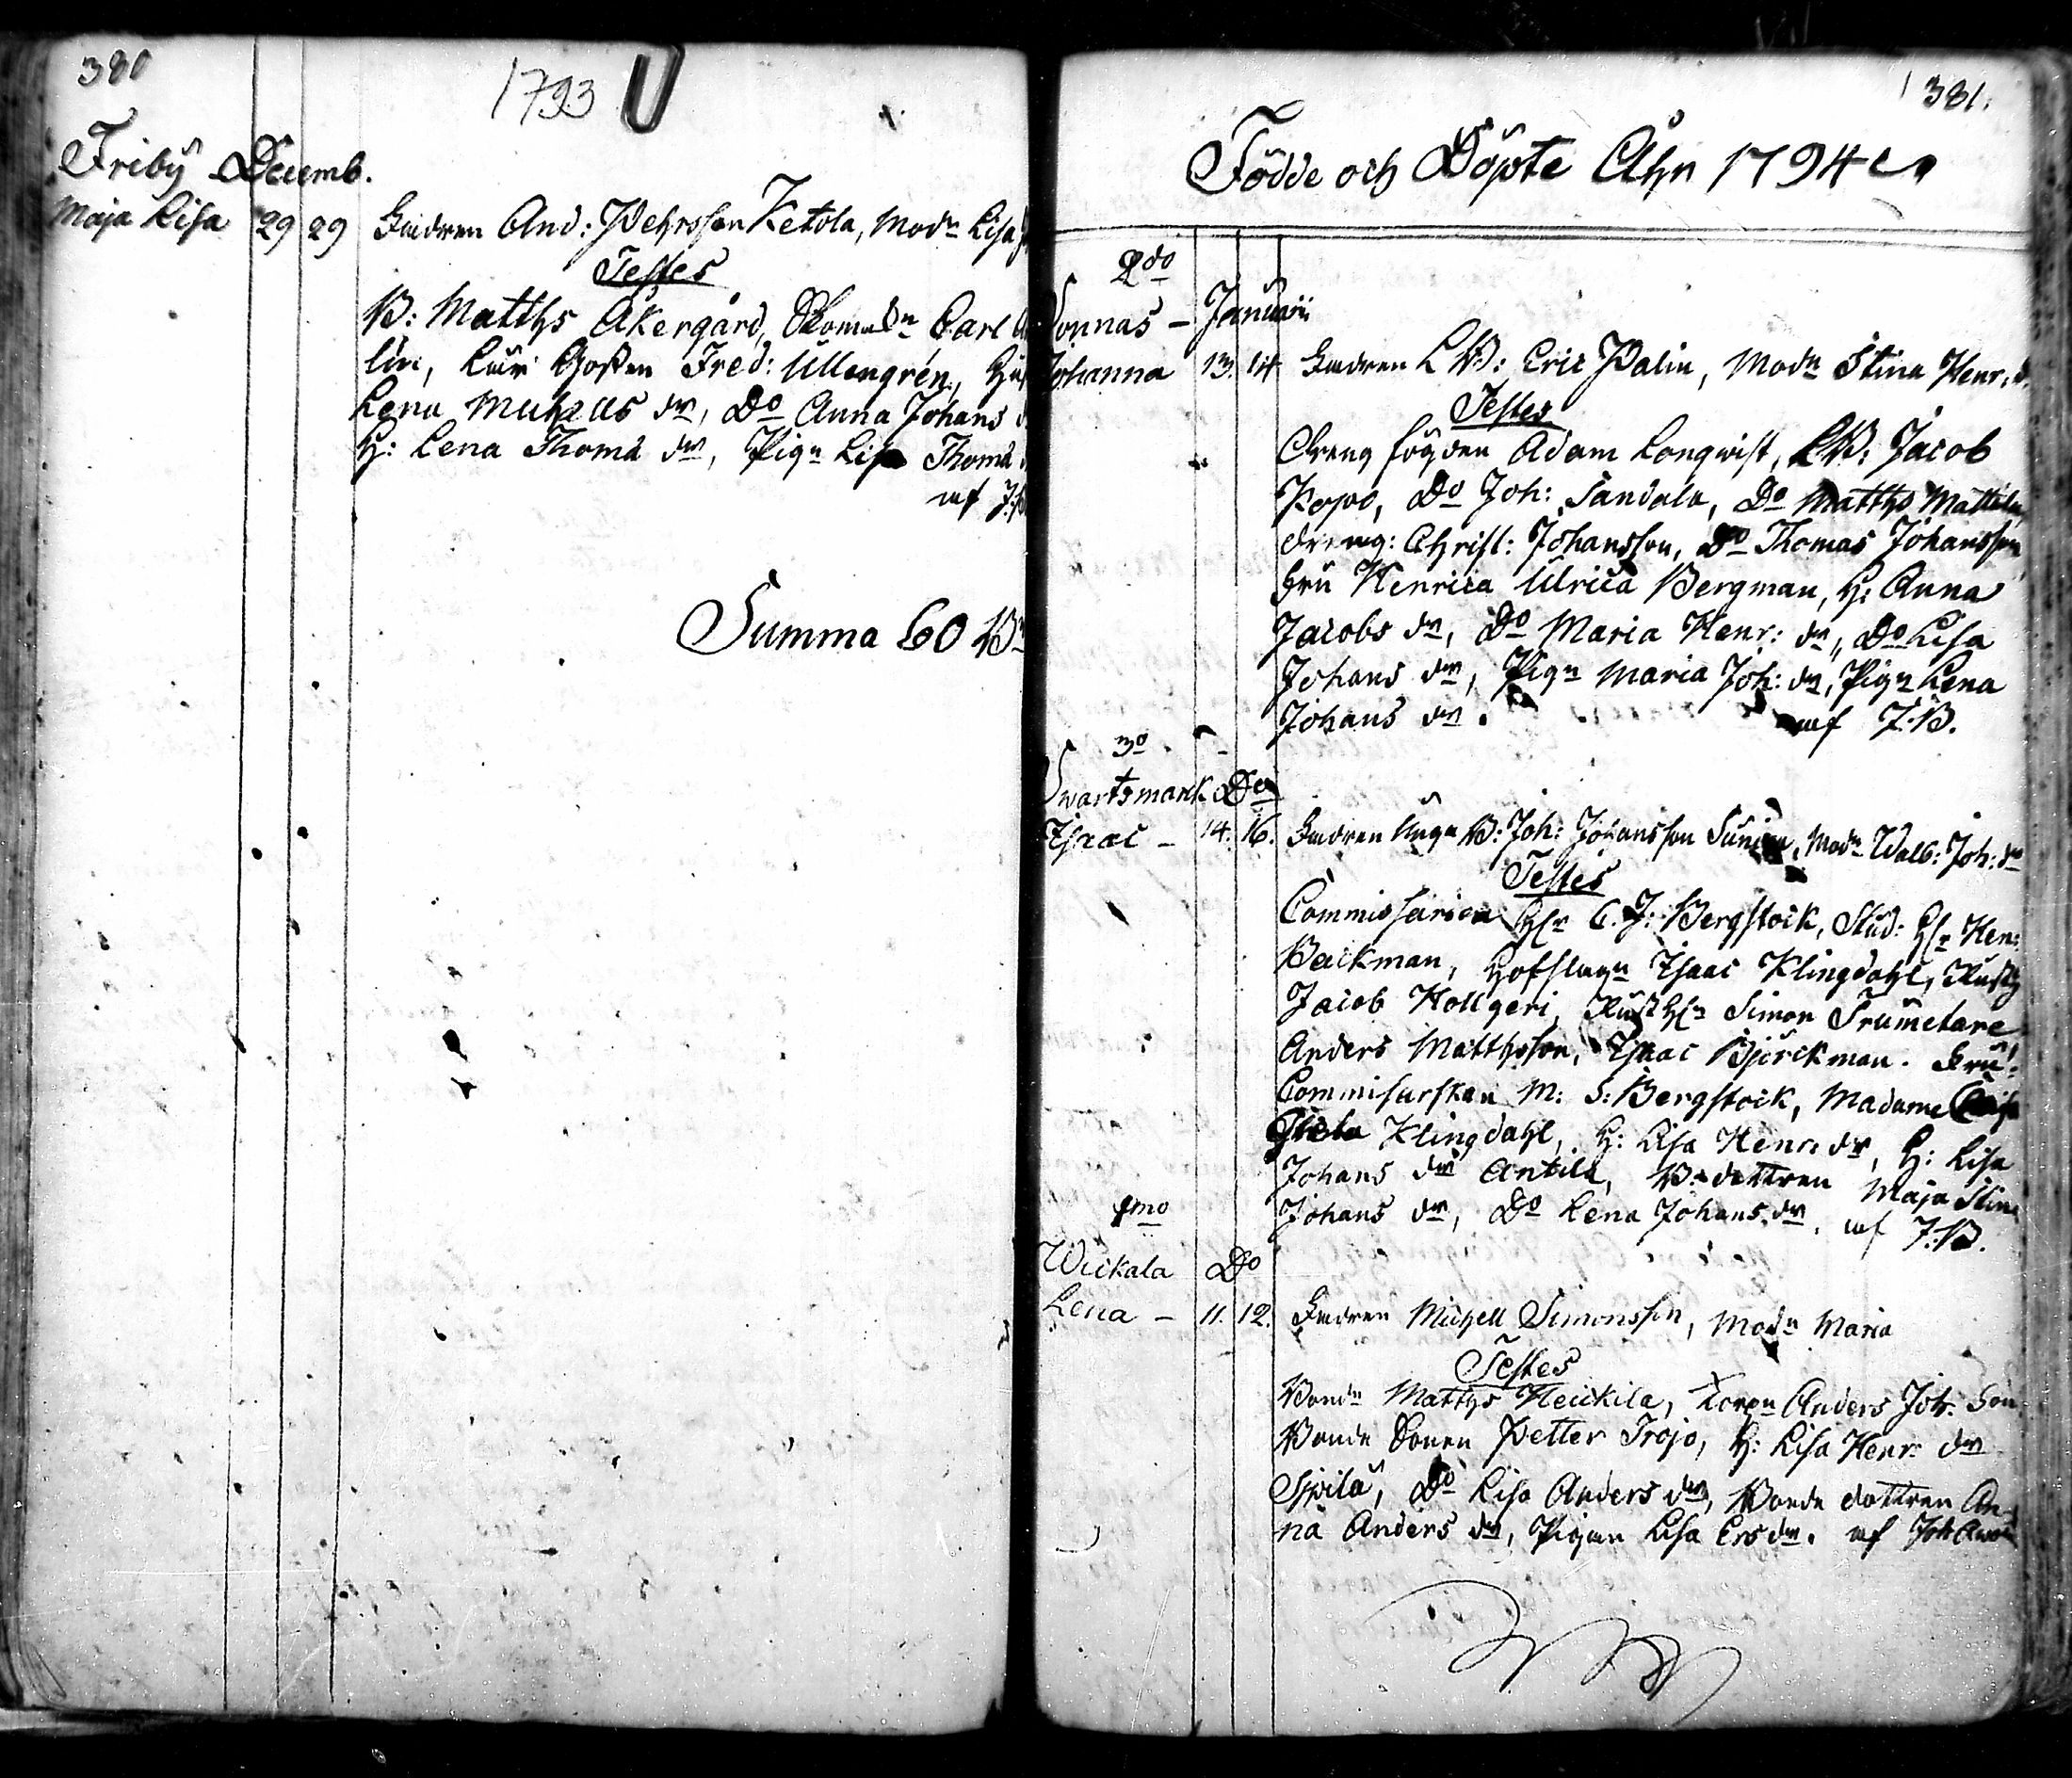 380
1793
Friby Decemb.
Maja Lisa 29 29 Fadren And: Pehrsson Ketola, Modn Lisa
Testes
B: Matths Åkergård, Skomakn Carl
lin, Lär Gossen Fred: Ullengrén,
Lena Michells dr, Do Anna Johans
H: Lena Thomæ dr, Pign Lisa Thomæ
af
Summa 60 Bn
381.
Födde och Döpte Åhr 1794
2do
Januarii
Johanna 13. 14 Fadren LB: Eric Palin, Modn Stina Henr: d.
Testes
Dreng fogden Adam Lonqwist, LB: Jacob
Popo, Do Joh: Sandala, Do Matths Mattila
Dreng: Christ: Johansson, Do Thomas Johansson
Fru Henrica Ulrica Bergman, H: Anna
Jacobs dr, Do Maria Henr: dr, Do Lisa
Johans dr, Pign Maria Joh: dr, Pign Lena
Johans dr. af J:B.
3o
Swartsmark Do
Isaac - 14. 16. Fadren Unga B: Joh: Johansson Modn Walb: Joh: dr
Testes
Commissarien Hr C. J: Bergstock, Stud: Hr Hen:
Backman, Hofslagn Isaac Klingdahl,
Jacob Hollgeri, Rusthn Simon Trumetare
Anders Matthsson, Isaac Björckman. Fru
Commisarskan M: S: Bergstock, Madame
Klingdahl, H: Lisa Henr: dr, H: Lisa
Johans dr Antila, B: dottren Maja Stina
Johans dr, Do Lena Johans dr. af J:B.
1mo
Wickala Do
Lena - 11. 12. Fadren Michell Simonsson, Modn Maria
Testes
Bondn Matths Heickila, Torpn Anders Joh: Son
Bonde Sonen Petter Trojo, H: Lisa Henr: dr
Spila, Do Lisa Anders dr, Bonde dottren An-
na Anders dr, Pigan Lisa Ers dr. af Joh